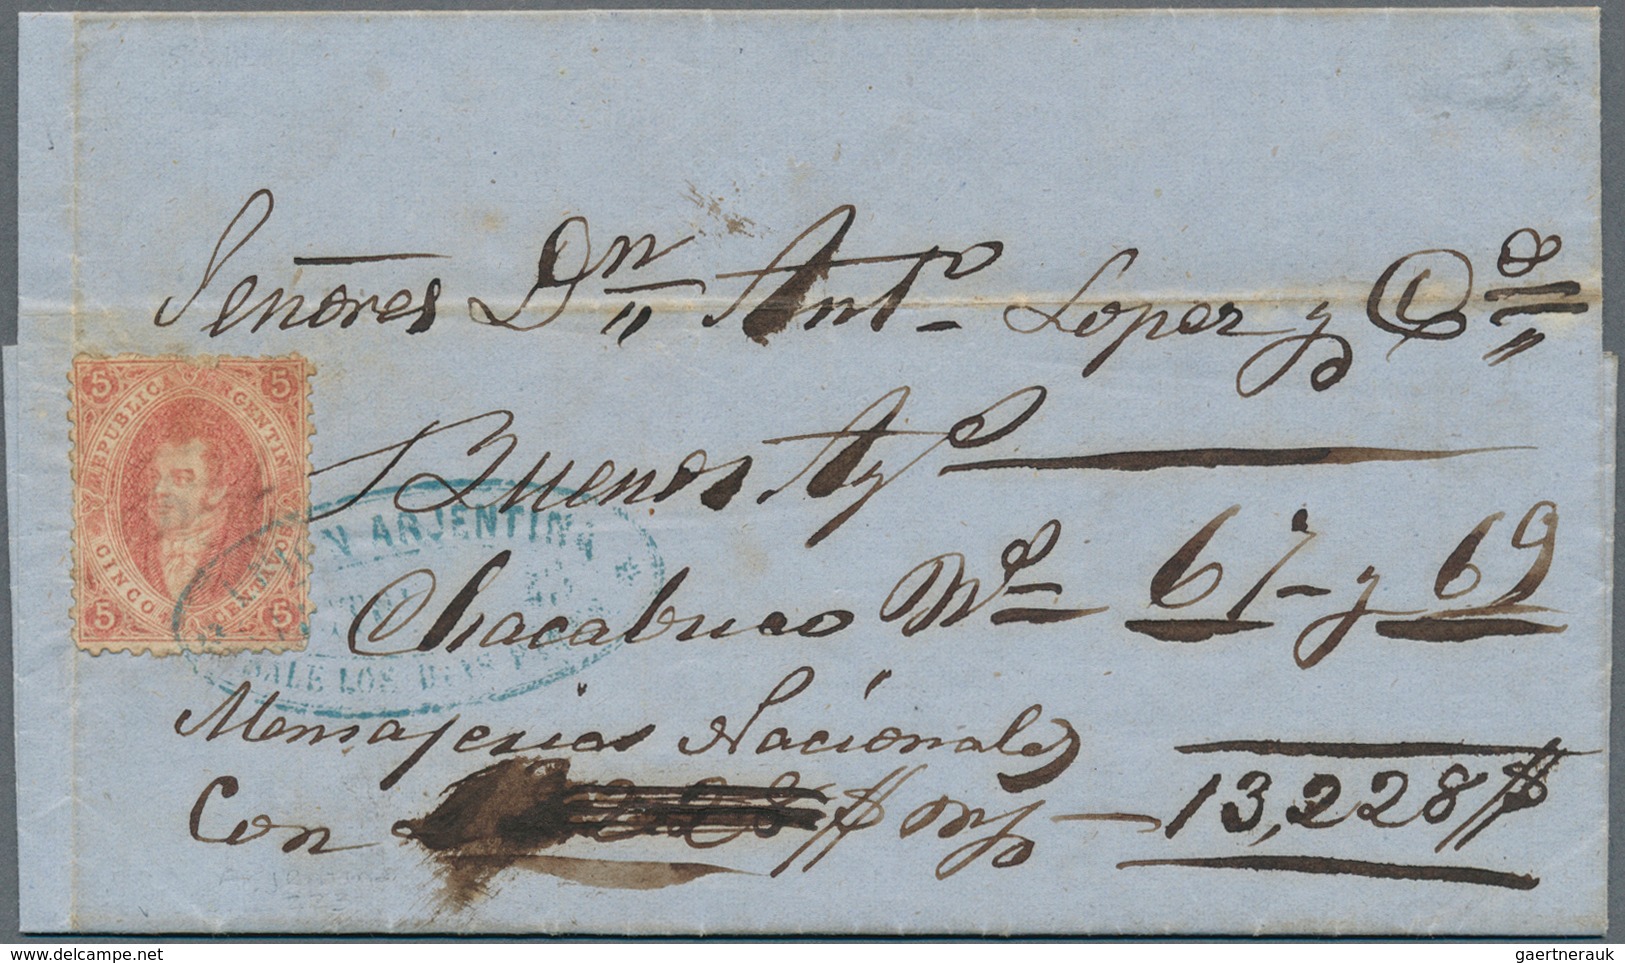 Señores Dn Anto Lopez y Ca
5 REPUBLICA ARGENTINA 5
Buenos Ays
ARJENTINA
5 CINCO CENTAVOS 5
Chacabuco No 67 y 69
SALE LOS DIAS
Mensajerias Nacionales
Con m/ 13,228 $
gaertnerauk